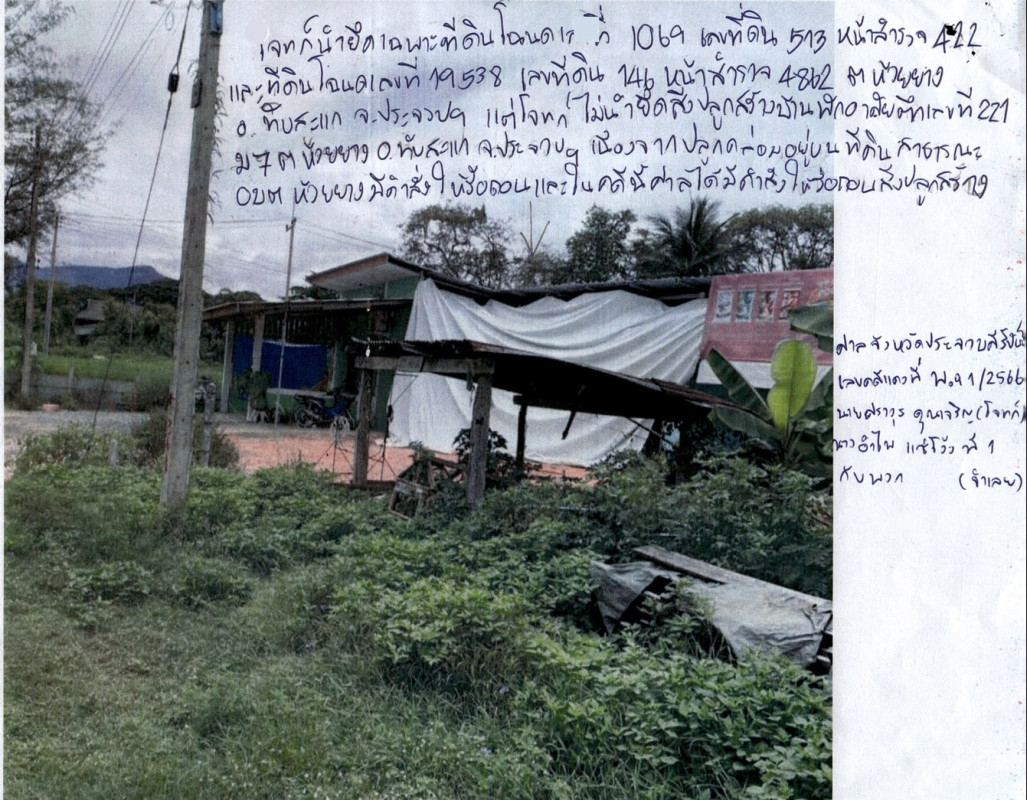 โจทก์นำยึดเฉพาะที่ดินโฉนดเลขที่ 1069 เลขที่ดิน 513 หน้าสำรวจ 422
และที่ดินโฉนดเลขที่ 19538 เลขที่ดิน 146 หน้าสำรวจ 4862 ต ห้วยยาง
อ.ทับสะแก จ.ประจวบฯ แต่โจทก์ไม่นำยึดสิ่งปลูกสร้างบ้านพักอาศัยตึกเลขที่ 221
ม 7 ต ห้วยยาง อ.ทับสะแก จ.ประจวบฯ เนื่องจากปลูกคล่อมอยู่บนที่ดินสาธารณะ
อบต ห้วยยางมีคำสั่งให้รื้อถอนและในคดีนี้ศาลได้มีคำสั่งให้รื้อถอนสิ่งปลูกสร้าง
ศาลจังหวัดประจวบคีรีขันธ์
เลขคดีแดงที่ พ.91/2566
(โจทก์)
ที่ 1
กับพวก (จำเลย)